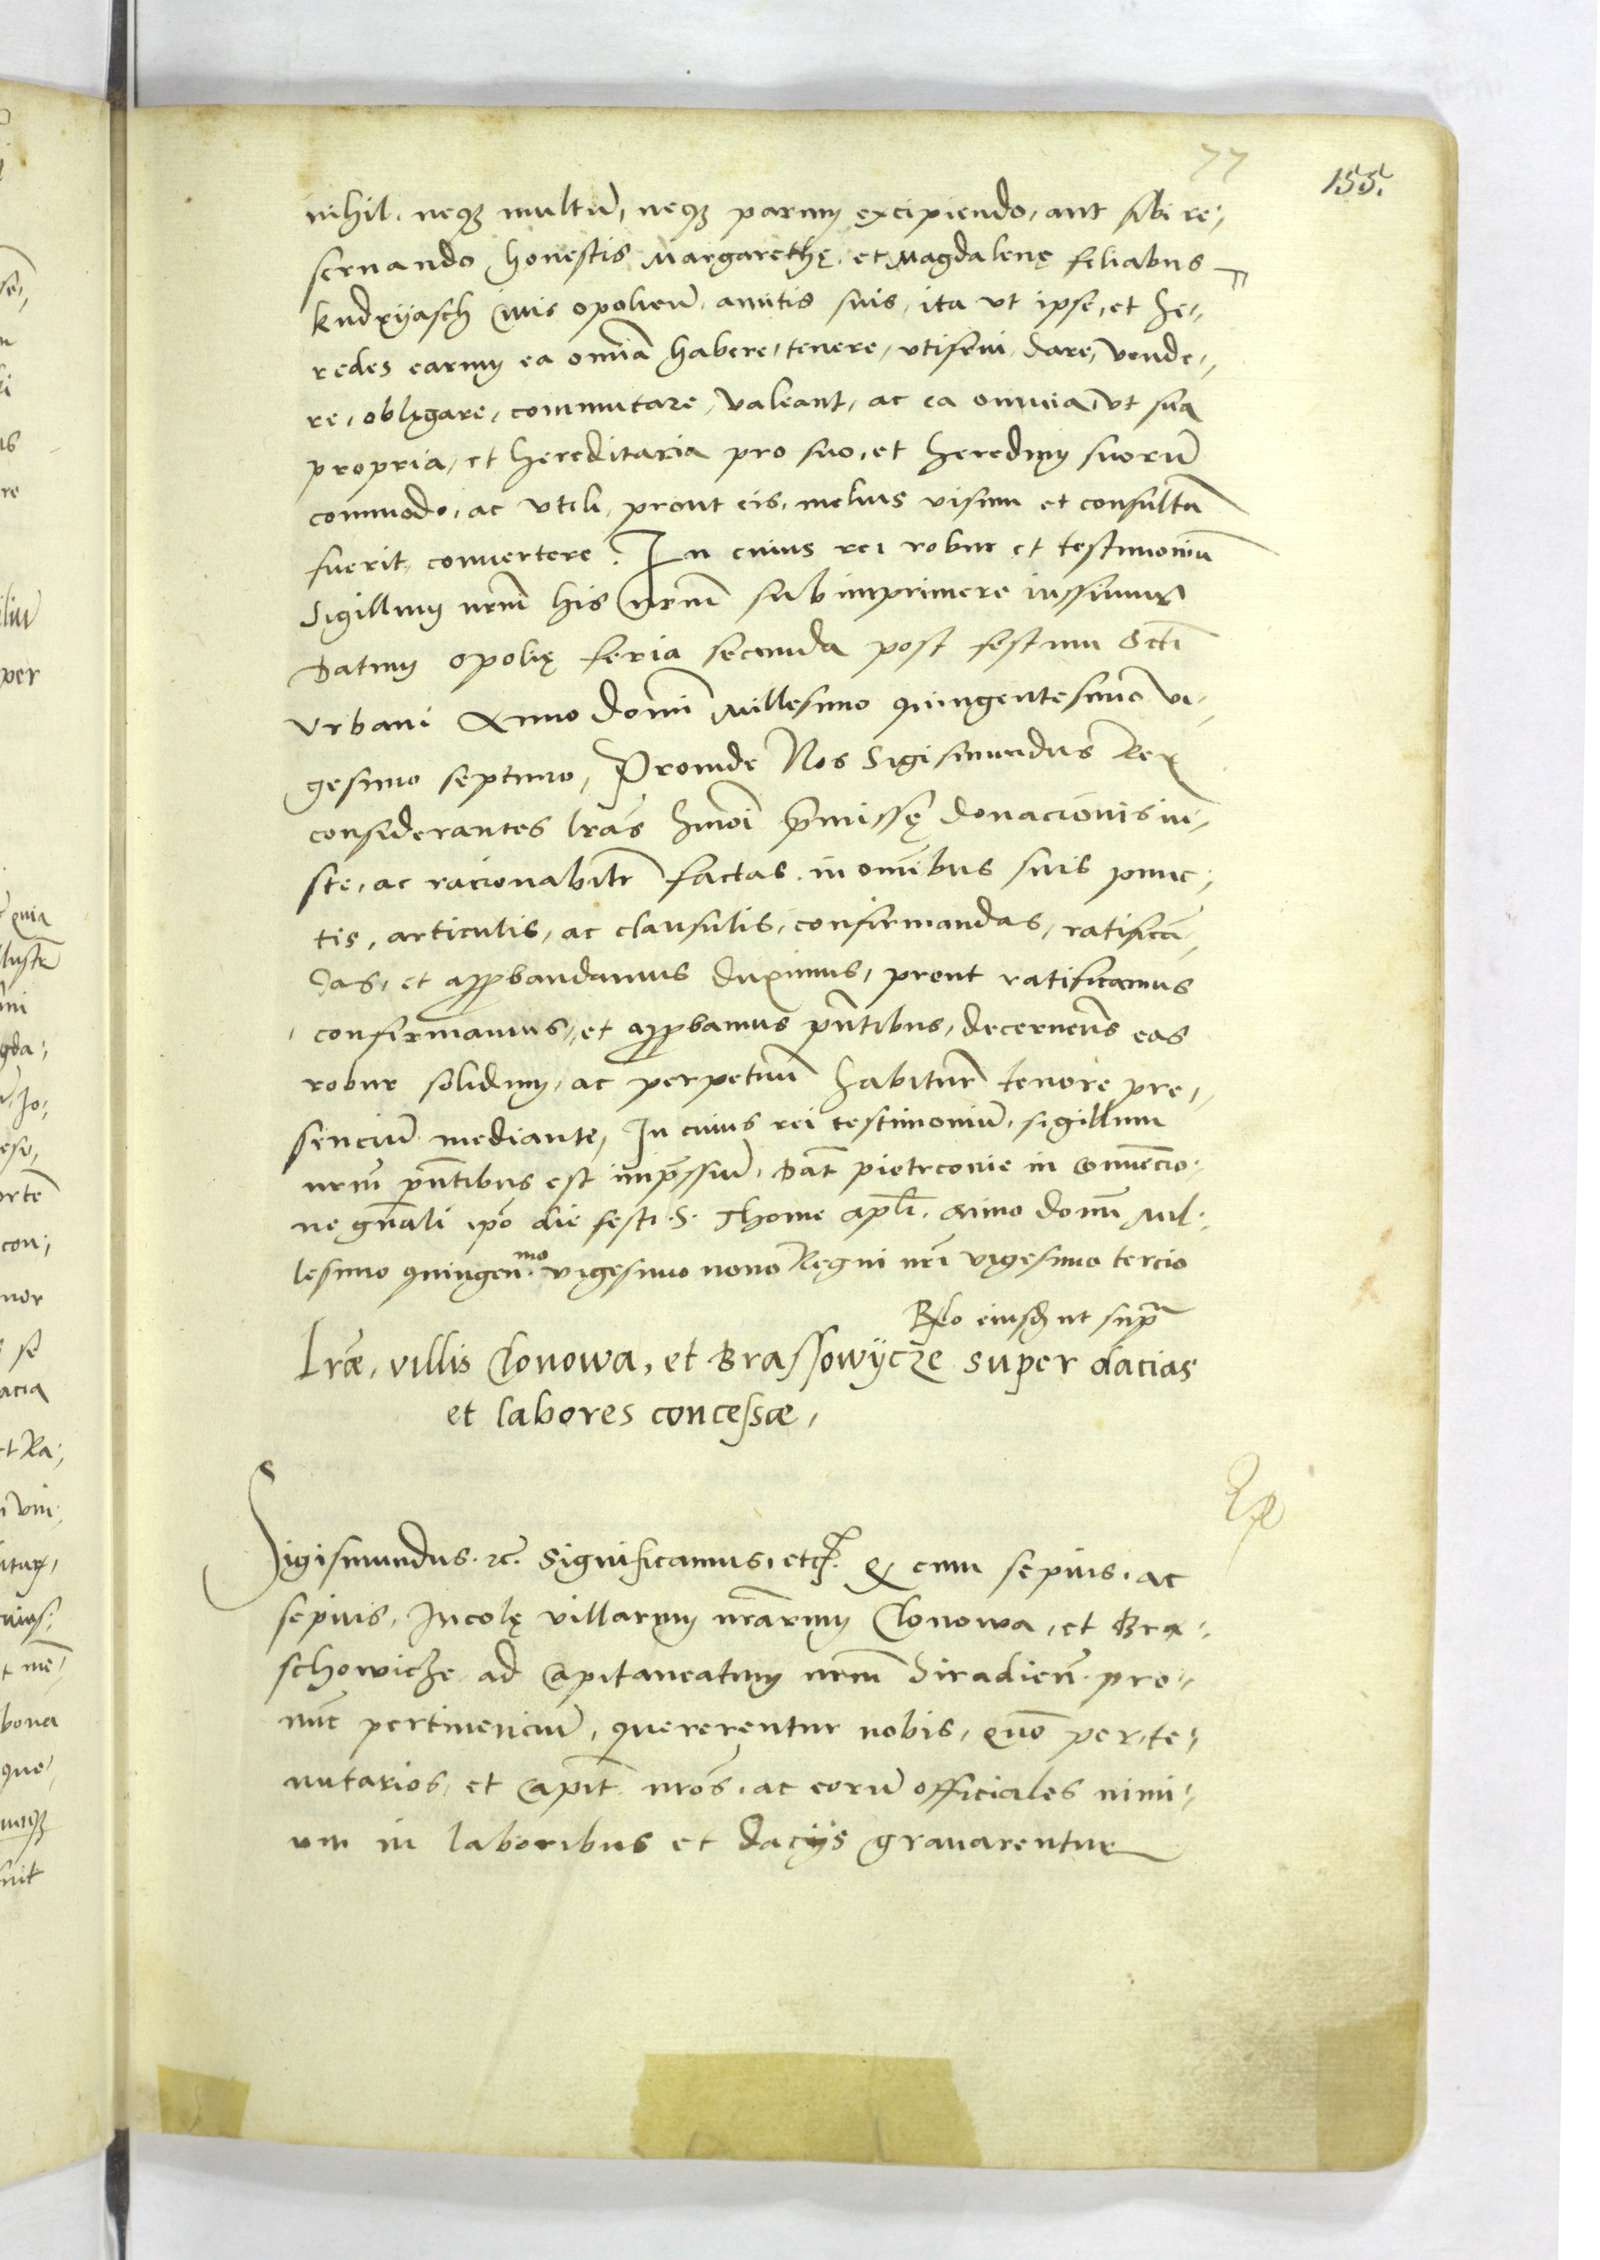 77
155.
nihil, neqꝫ multū, neqꝫ parum excipiendo, aut sibi re,
seruando honestis Margarethę et Magdalenę filiabus
Kudzyasch Ciuis opolieñ amitis suis, ita vt ipse, et he,
redes earum ea om̃ia habere, tenere, vtifrui, dare, vende,
re, obligare, commutare, valeant, ac ea omnia, vt sua
propria, et hereditaria pro suo, et heredum suorū
commodo, ac vtili, prout eis, melius visum et consultū
fuerit, conuertere. In cuius rei robur et testimoniū
Sigillum nr̃m his nr̃m sub imprimere iussimus
Datum Opolię feria secunda post festum Scti
Vrbani Anno domi Millesimo quingentesimo vi,
gesimo septimo, Proinde Nos Sigismundus Rex
considerantes lr̃as hmoi p̃missę donacionis iu,
ste, ac racionabilr̃ factas, in om̃ibus suis punc,
tis, articulis, ac clausulis, confirmandas, ratificā,
das, et approbandamus duximus, prout ratificamus
confirmamus, et approbamus pñtibus, decernen̄s eas
robur solidum, ac perpetuum habitur̃ tenore pre,
senciū mediante, In cuius rei testimoniū, sigillum
nr̃m pñtibus est imp̃ssum, Dat̃ pietrconie in Conuēcio,
ne gñali ipō die festi S. Thome apl̃i, Anno domi Mil,
lesimo quingen.mo vigesimo nono Regni nr̃i vigesimo tercio
Rlo eiusd ut supra
Lr̃æ, villis Clonowa, et Brassowycze super dacias
et labores concessæ,
Sigismundus ꝛc̃. Significamus, etc. Q cum sepius, ac
sepius, Incolę villarum nr̃arum Clonowa, et Bra,
schowicze ad Capitaneatum nr̃m Siradieñ pro,
nūc pertinenciū, quererentur nobis, quō per, te,
nutarios, et Capit̃ nr̃os, ac eorū officiales nimi,
um in laboribus et dacijs grauarentur